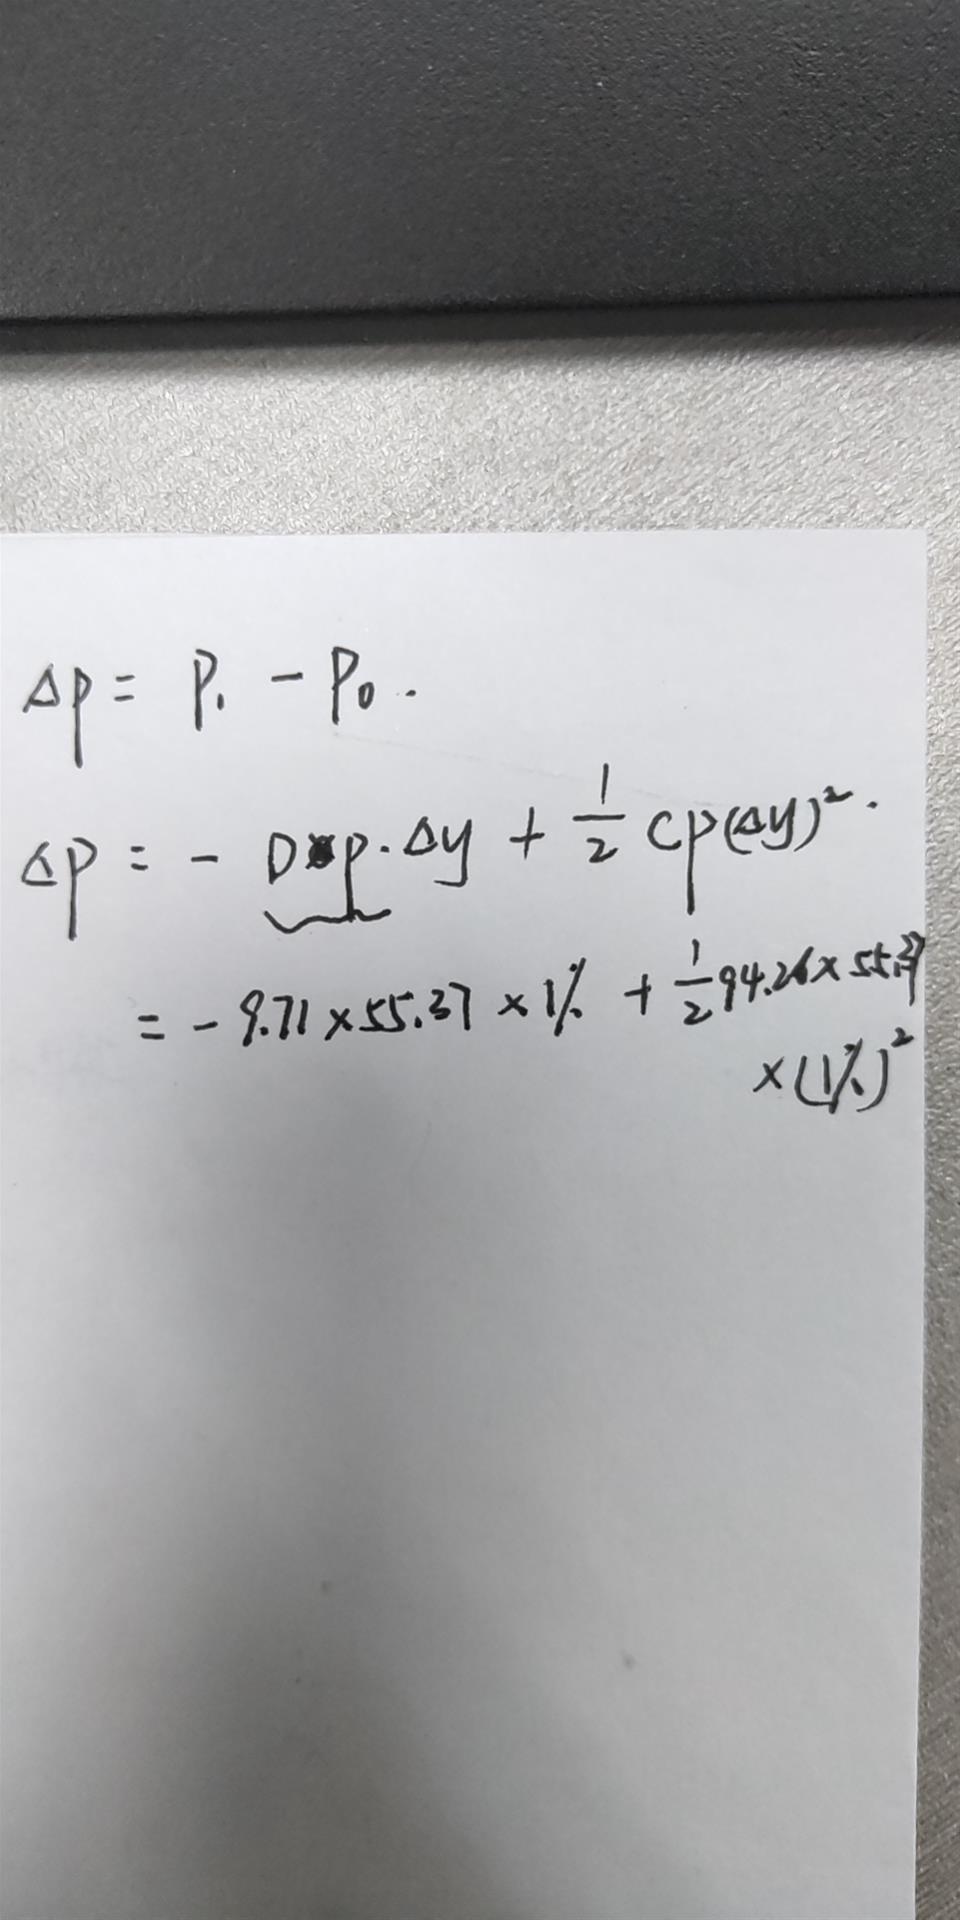 Δp = P₁ - P₀.
Δp = - D p · Δy + 1/2 cp(Δy)² .
= - 9.71 × 55.37 × 1% + 1/2 94.26 × 55.37
× (1%)²